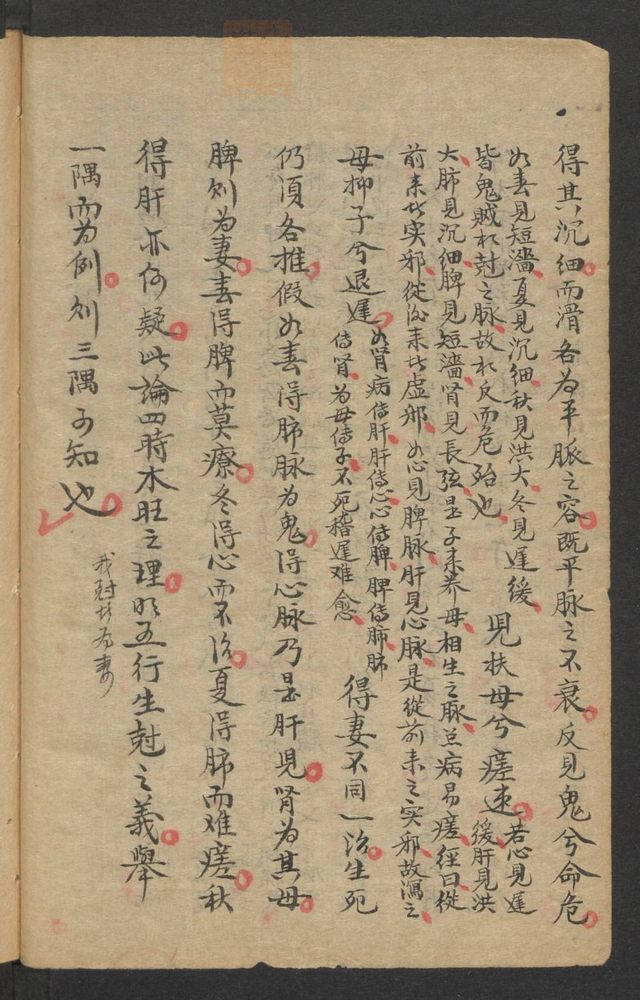 得其沉細而滑各为平脈之容既平脉之不衰反見鬼兮命危
如春見短濇夏見沉細秋見洪大冬見遲緩
皆鬼賊相尅之脉故相反而危殆也
児扶母兮瘥速
若心見遲緩肝見洪
大肺見沉細脾見短濇肾見長弦是子来养母相生之脉並病易瘥経曰従
前来者实邪従後来者虚邪如心見脾脉肝見心脉是從前来之实邪故瀉之
母抑子兮退遲
如肾病传肝肝传心心传脾脾传肺肺
传肾为母传子不死稽遲难愈
得妻不同一治生死
仍須各推假如春得肺脉为鬼得心脉乃是肝児肾为其母
脾则为妻春得脾而莫療冬得心而不治夏得肺而难瘥秋
得肝亦何疑此論四時木旺之理明五行生尅之義舉
一隅而为例则三隅可知也
我尅者为妻